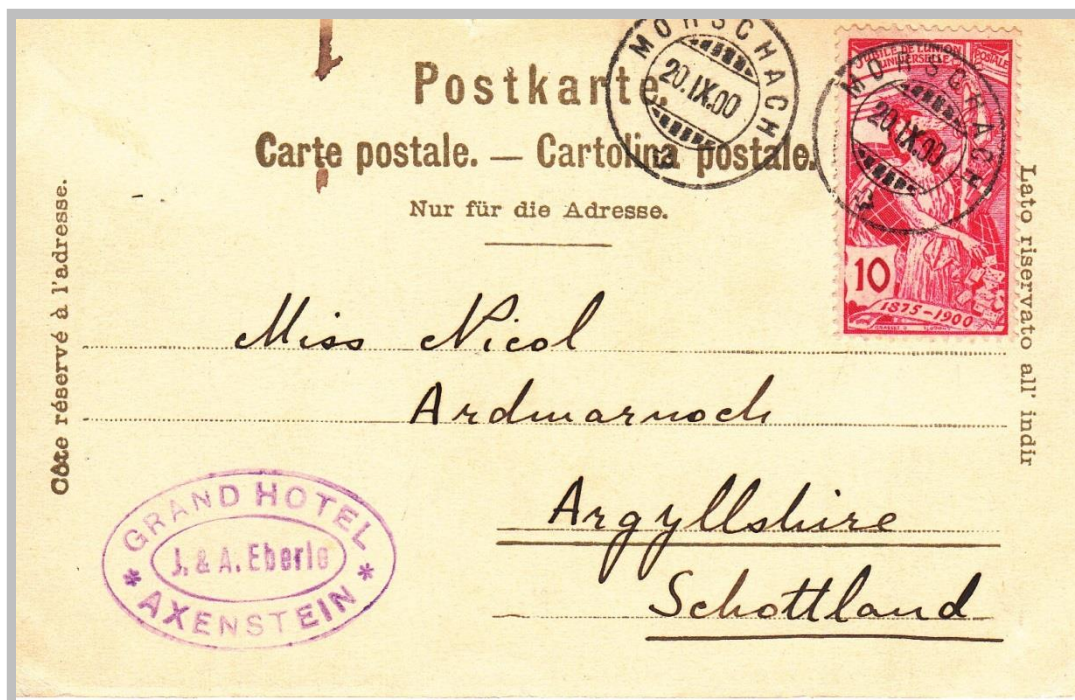 Postkarte.
Carte postale. — Cartolina postale.
Nur für die Adresse.
MORSCHACH
20.IX.00
MORSCHACH
20.IX.00
JUBILÉ DE L'UNION POSTALE
UNIVERSELLE
10
1875-1900
Côté réservé à l'adresse.
Lato riservato all' indir
Miss Nicol
Ardmarnoch
Argyllshire
Schottland
GRAND HOTEL
J. & A. Eberle
* AXENSTEIN *